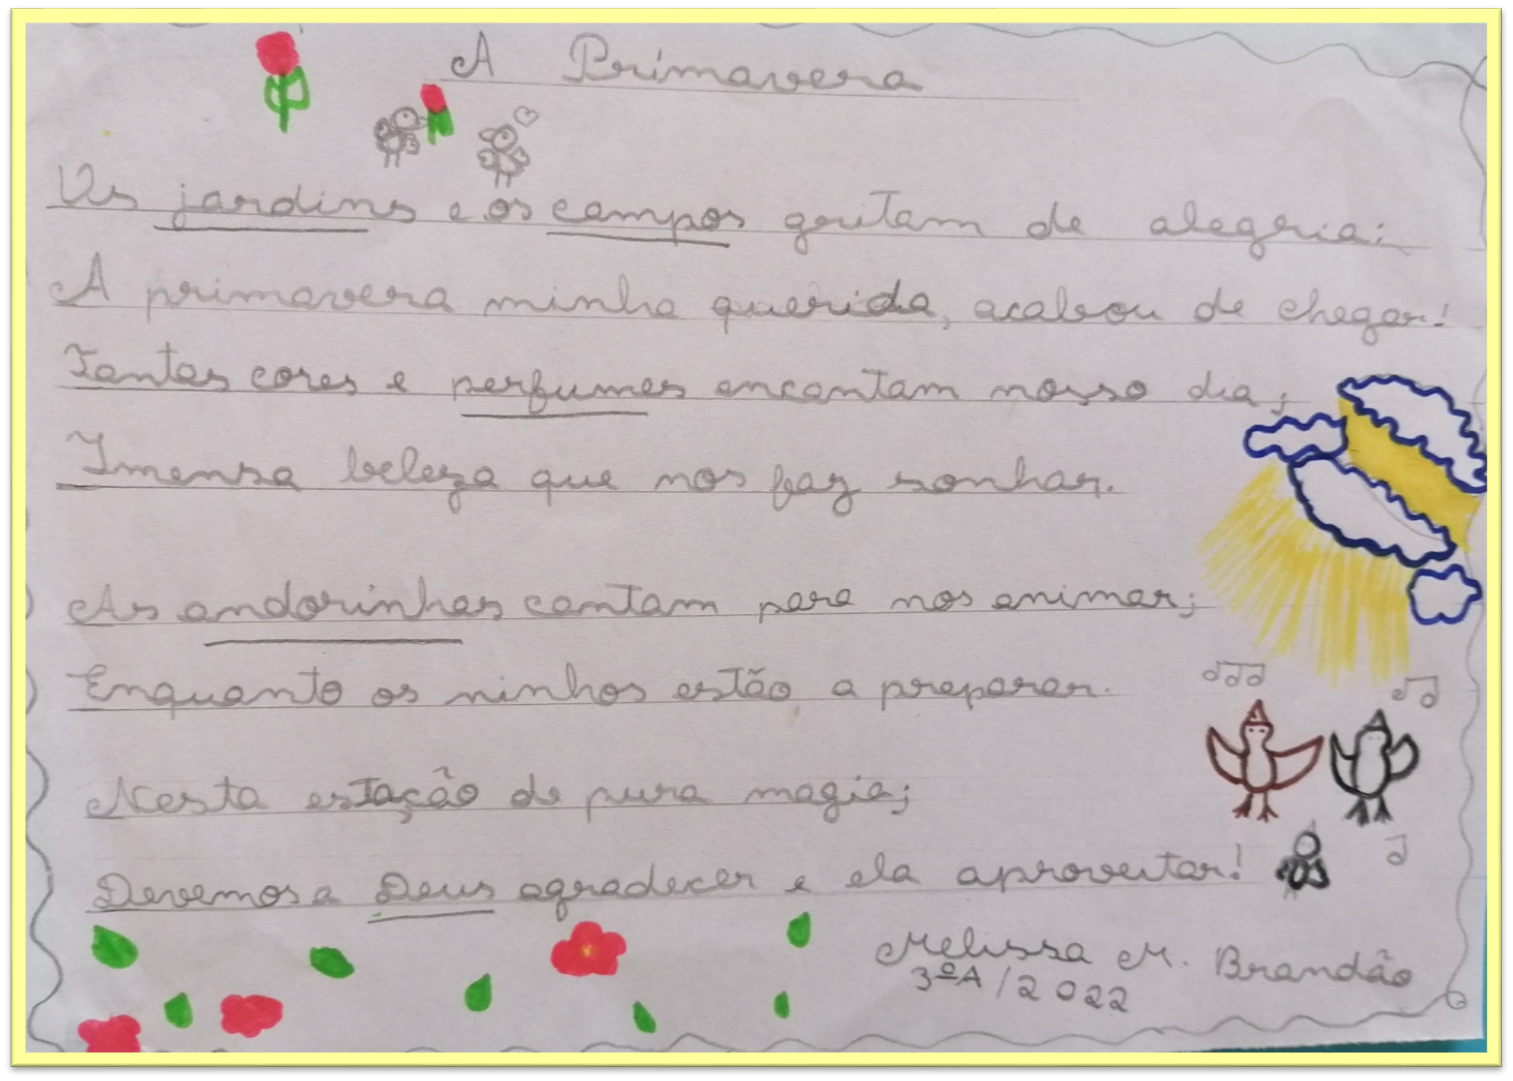 A Primavera
Os jardins e os campos gritam de alegria:
A primavera minha querida, acabou de chegar!
Tantas cores e perfumes encantam nosso dia;
Imensa beleza que nos faz sonhar.
As andorinhas cantam para nos animar;
Enquanto os ninhos estão a preparar.
Nesta estação de pura magia;
Devemos a Deus agradecer e ela aproveitar!
Melissa M. Brandão
3ºA/2022